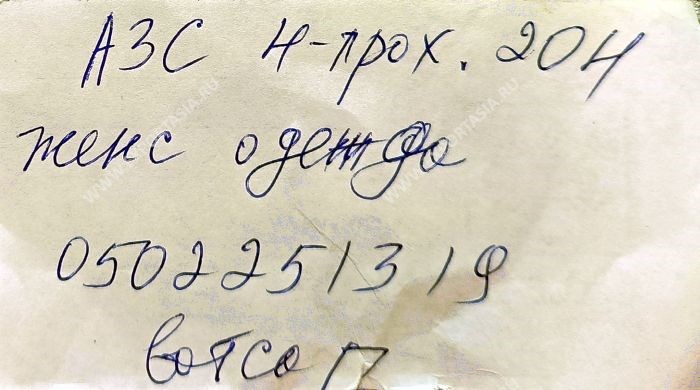 АЗС 4-прох. 204
женс одежда
0502251319
вотсо П